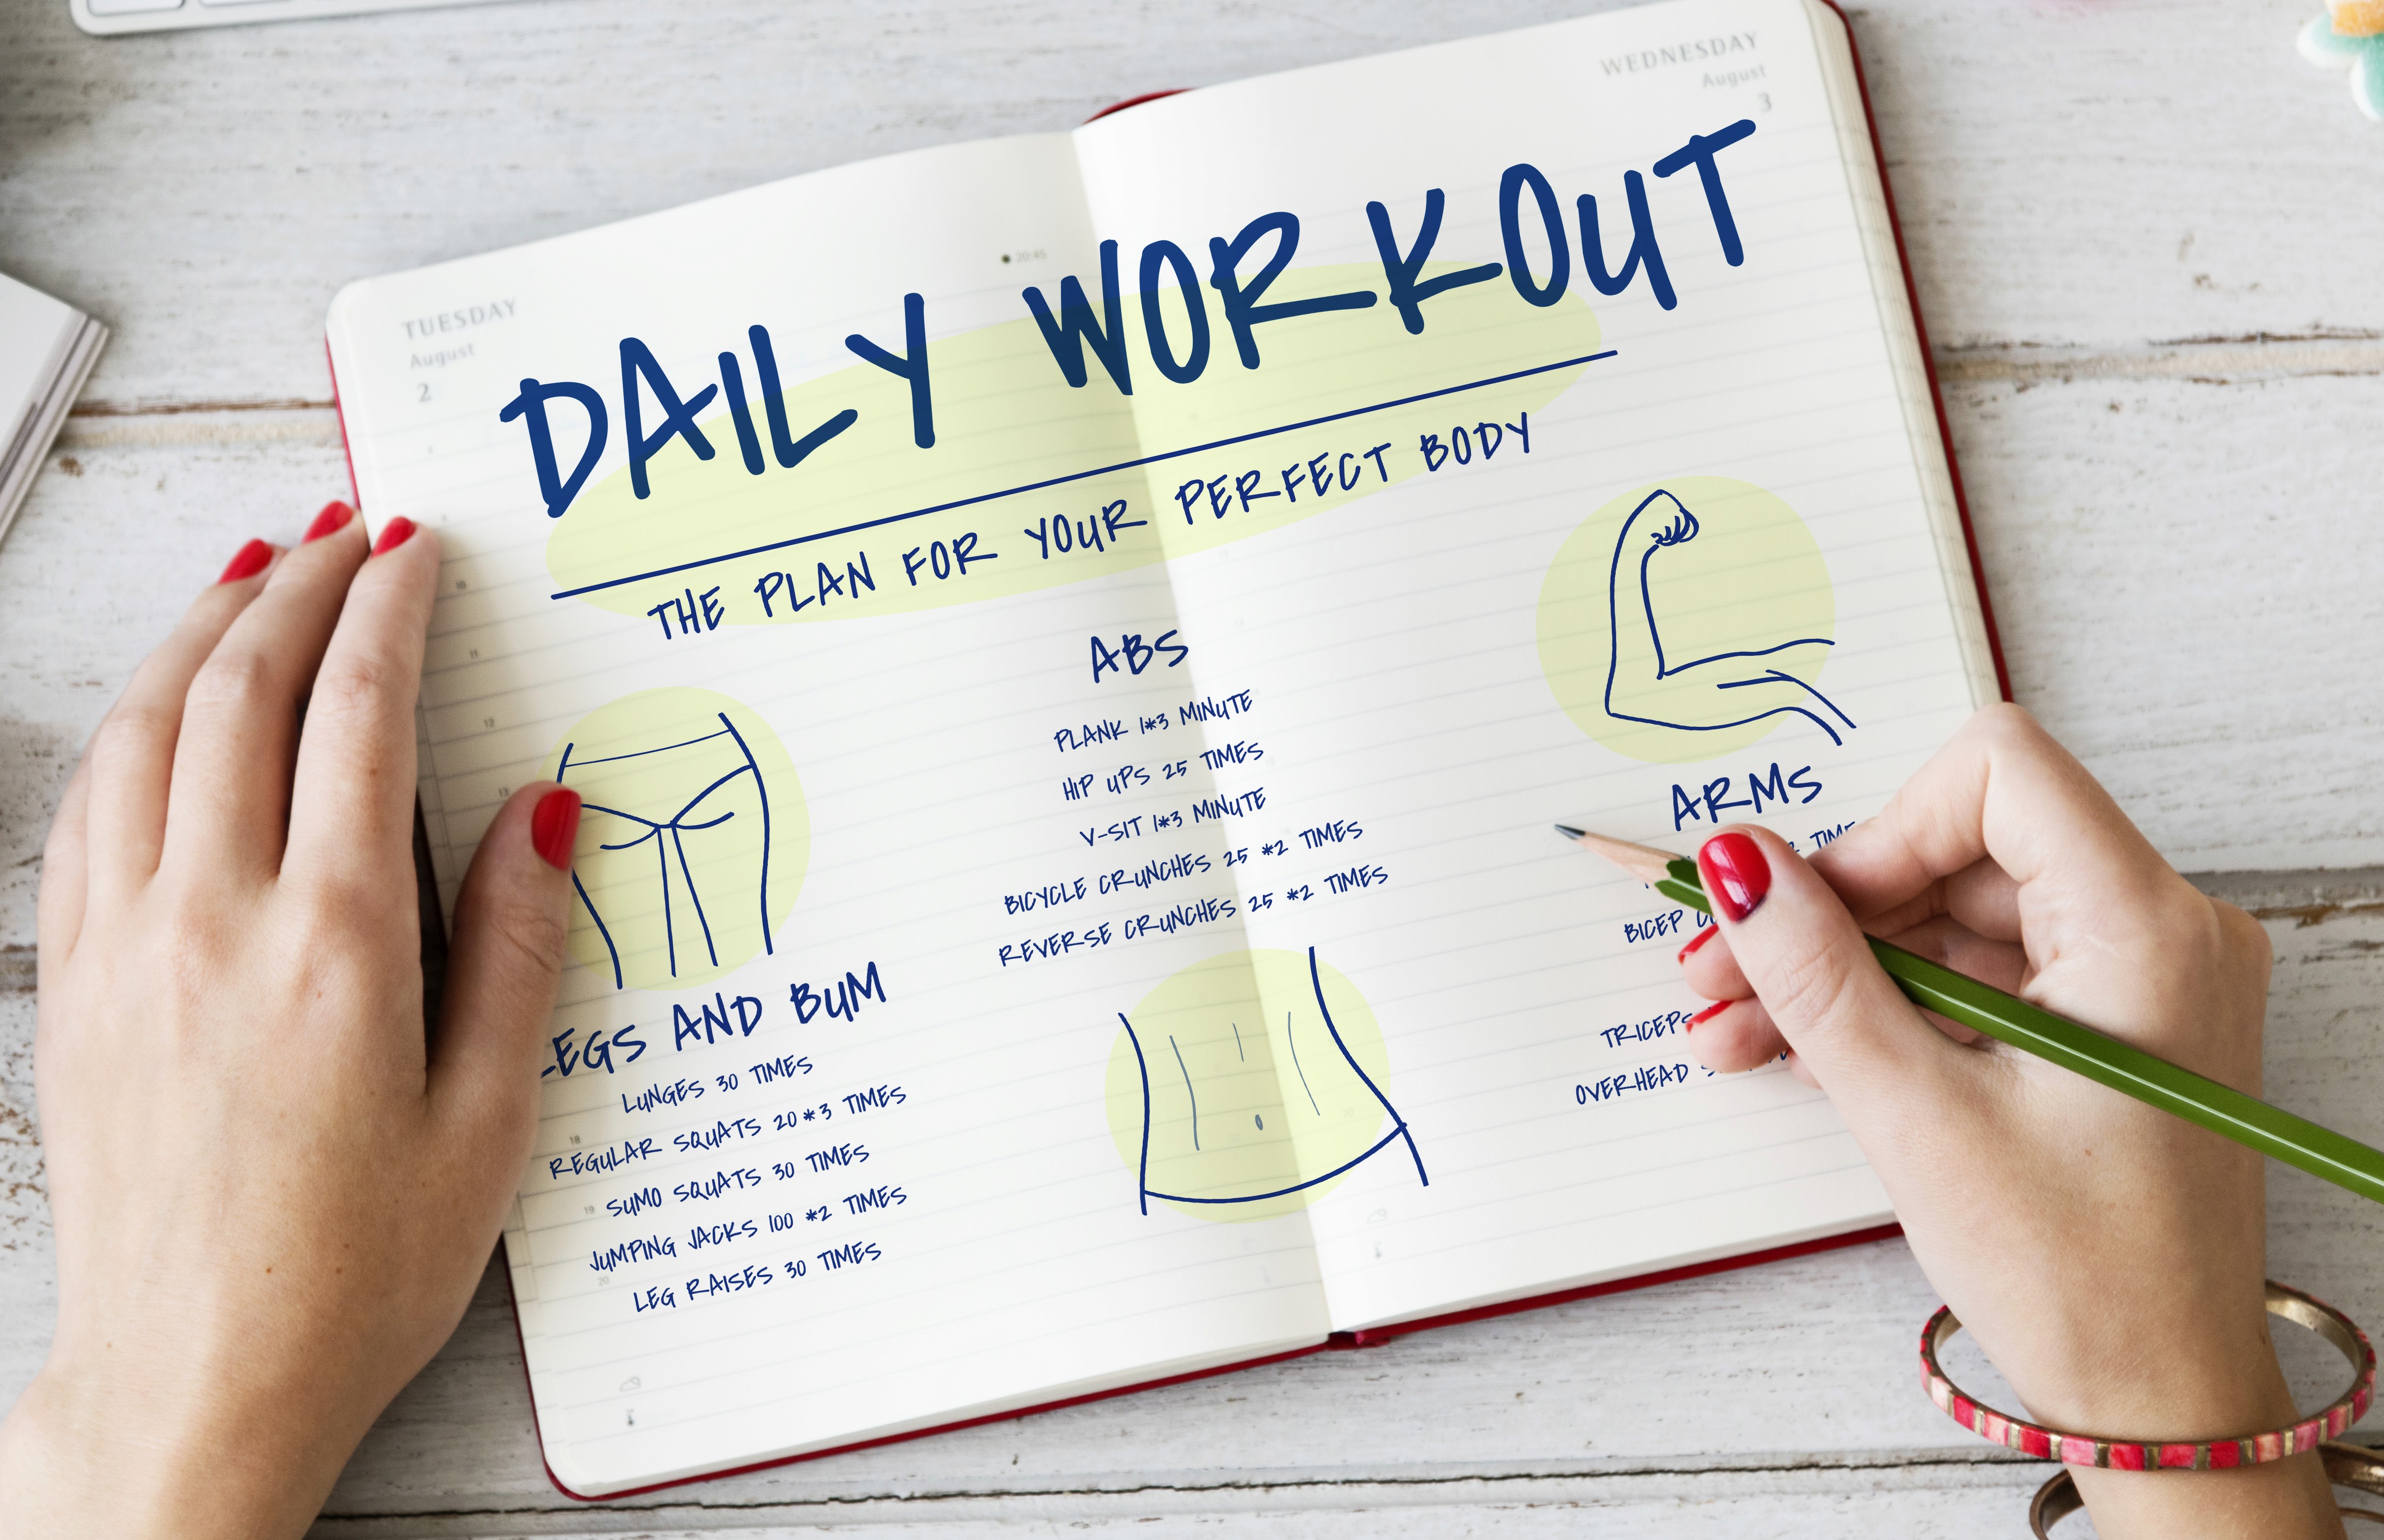 TUESDAY
August
2
WEDNESDAY
August
3
20:45
DAILY WORKOUT
THE PLAN FOR YOUR PERFECT BODY
LEGS AND BUM
LUNGES 30 TIMES
REGULAR SQUATS 20*3 TIMES
SUMO SQUATS 30 TIMES
JUMPING JACKS 100 *2 TIMES
LEG RAISES 30 TIMES
ABS
PLANK 1*3 MINUTE
HIP UPS 25 TIMES
V-SIT 1*3 MINUTE
BICYCLE CRUNCHES 25 *2 TIMES
REVERSE CRUNCHES 25 *2 TIMES
ARMS
BICEP
TRICEPS
OVERHEAD
10
11
12
13
18
19
20